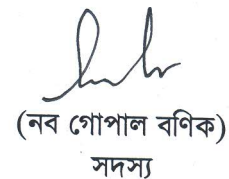 (নব গোপাল বণিক)
সদস্য